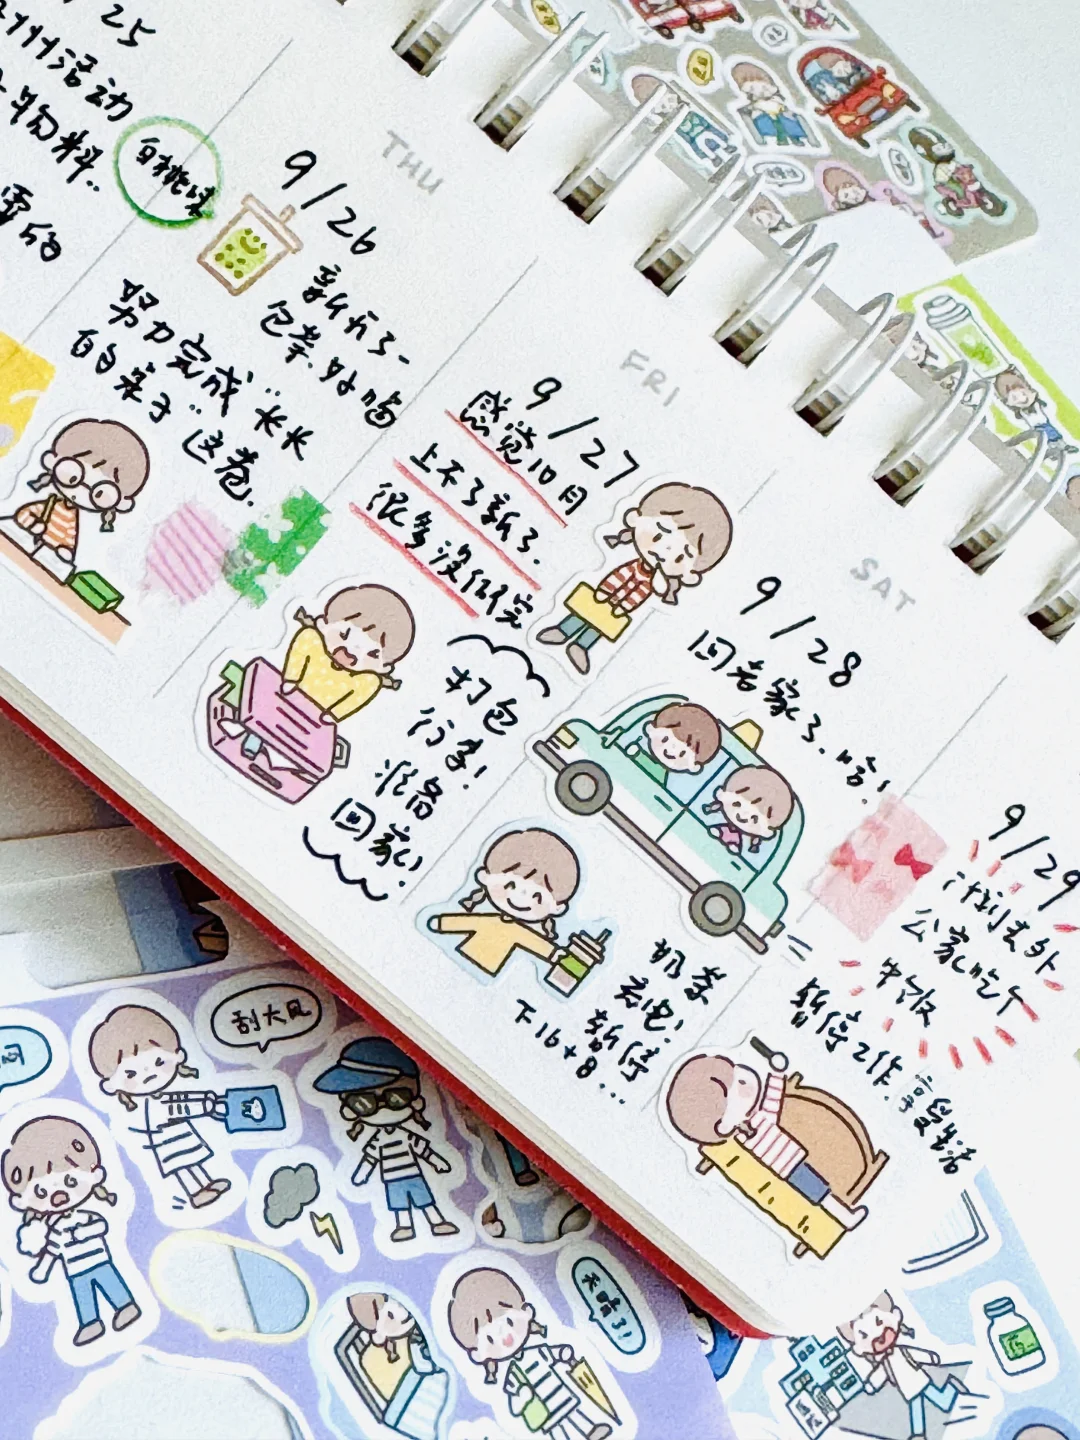 25
活动
物料..
THU
9/26
白桃味
新折了一
包茶.好喝
努力完成"长长
自自亲子"这卷.
FRI
9/27
感觉10月
上不了新了.
很多没做完
打包
行李!
准备
回家!
SAT
9/28
回老家了.哈!
奶茶
充电!
暂停
下16+8...
9/29
计划去外
公家吃个
中饭
暂停工作.享受生活
刮大风
天晴了!